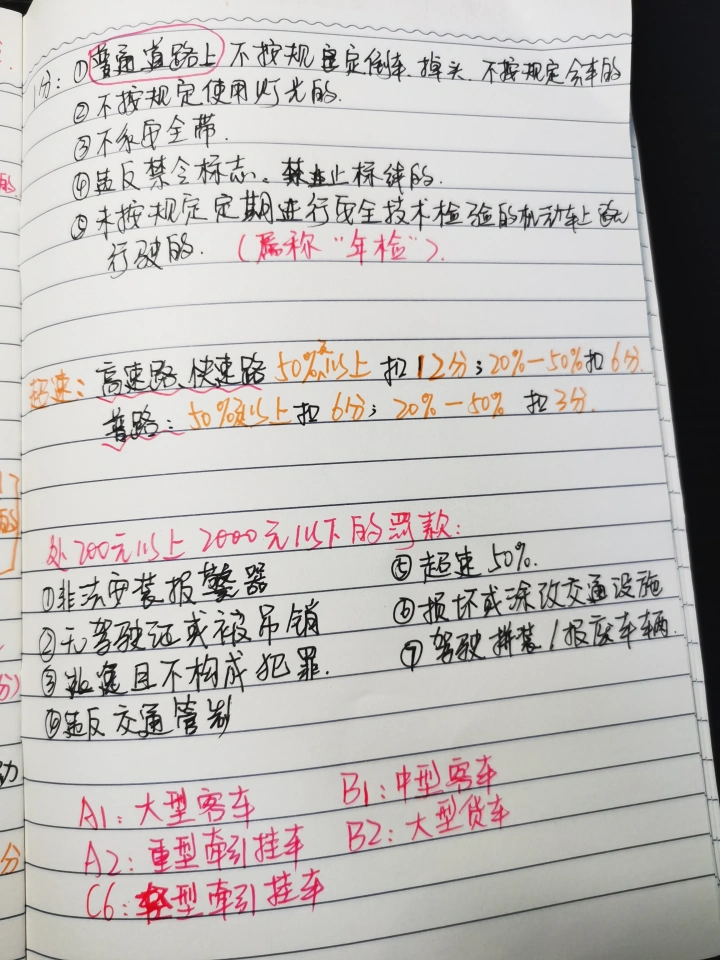 1分：①普通道路上不按规定倒车.掉头.不按规定会车的
②不按规定使用灯光的.
③不系安全带.
④违反禁令标志、禁止标线的.
⑤未按规定定期进行安全技术检验的机动车上路
行驶的.（属称“年检”）.
超速：高速路、快速路50%及以上 扣12分；20%—50%扣6分.
普路：50%及以上扣6分；20%—50% 扣3分.
处200元以上2000元以下的罚款：
①非法安装报警器
②无驾驶证或被吊销
③且不构成犯罪.
④违反交通管制
⑤超速50%.
⑥损坏或涂改交通设施
⑦驾驶拼装/报废车辆.
A1：大型客车
A2：重型牵引挂车
C6：轻型牵引挂车
B1：中型客车
B2：大型货车
的
分）
动
分